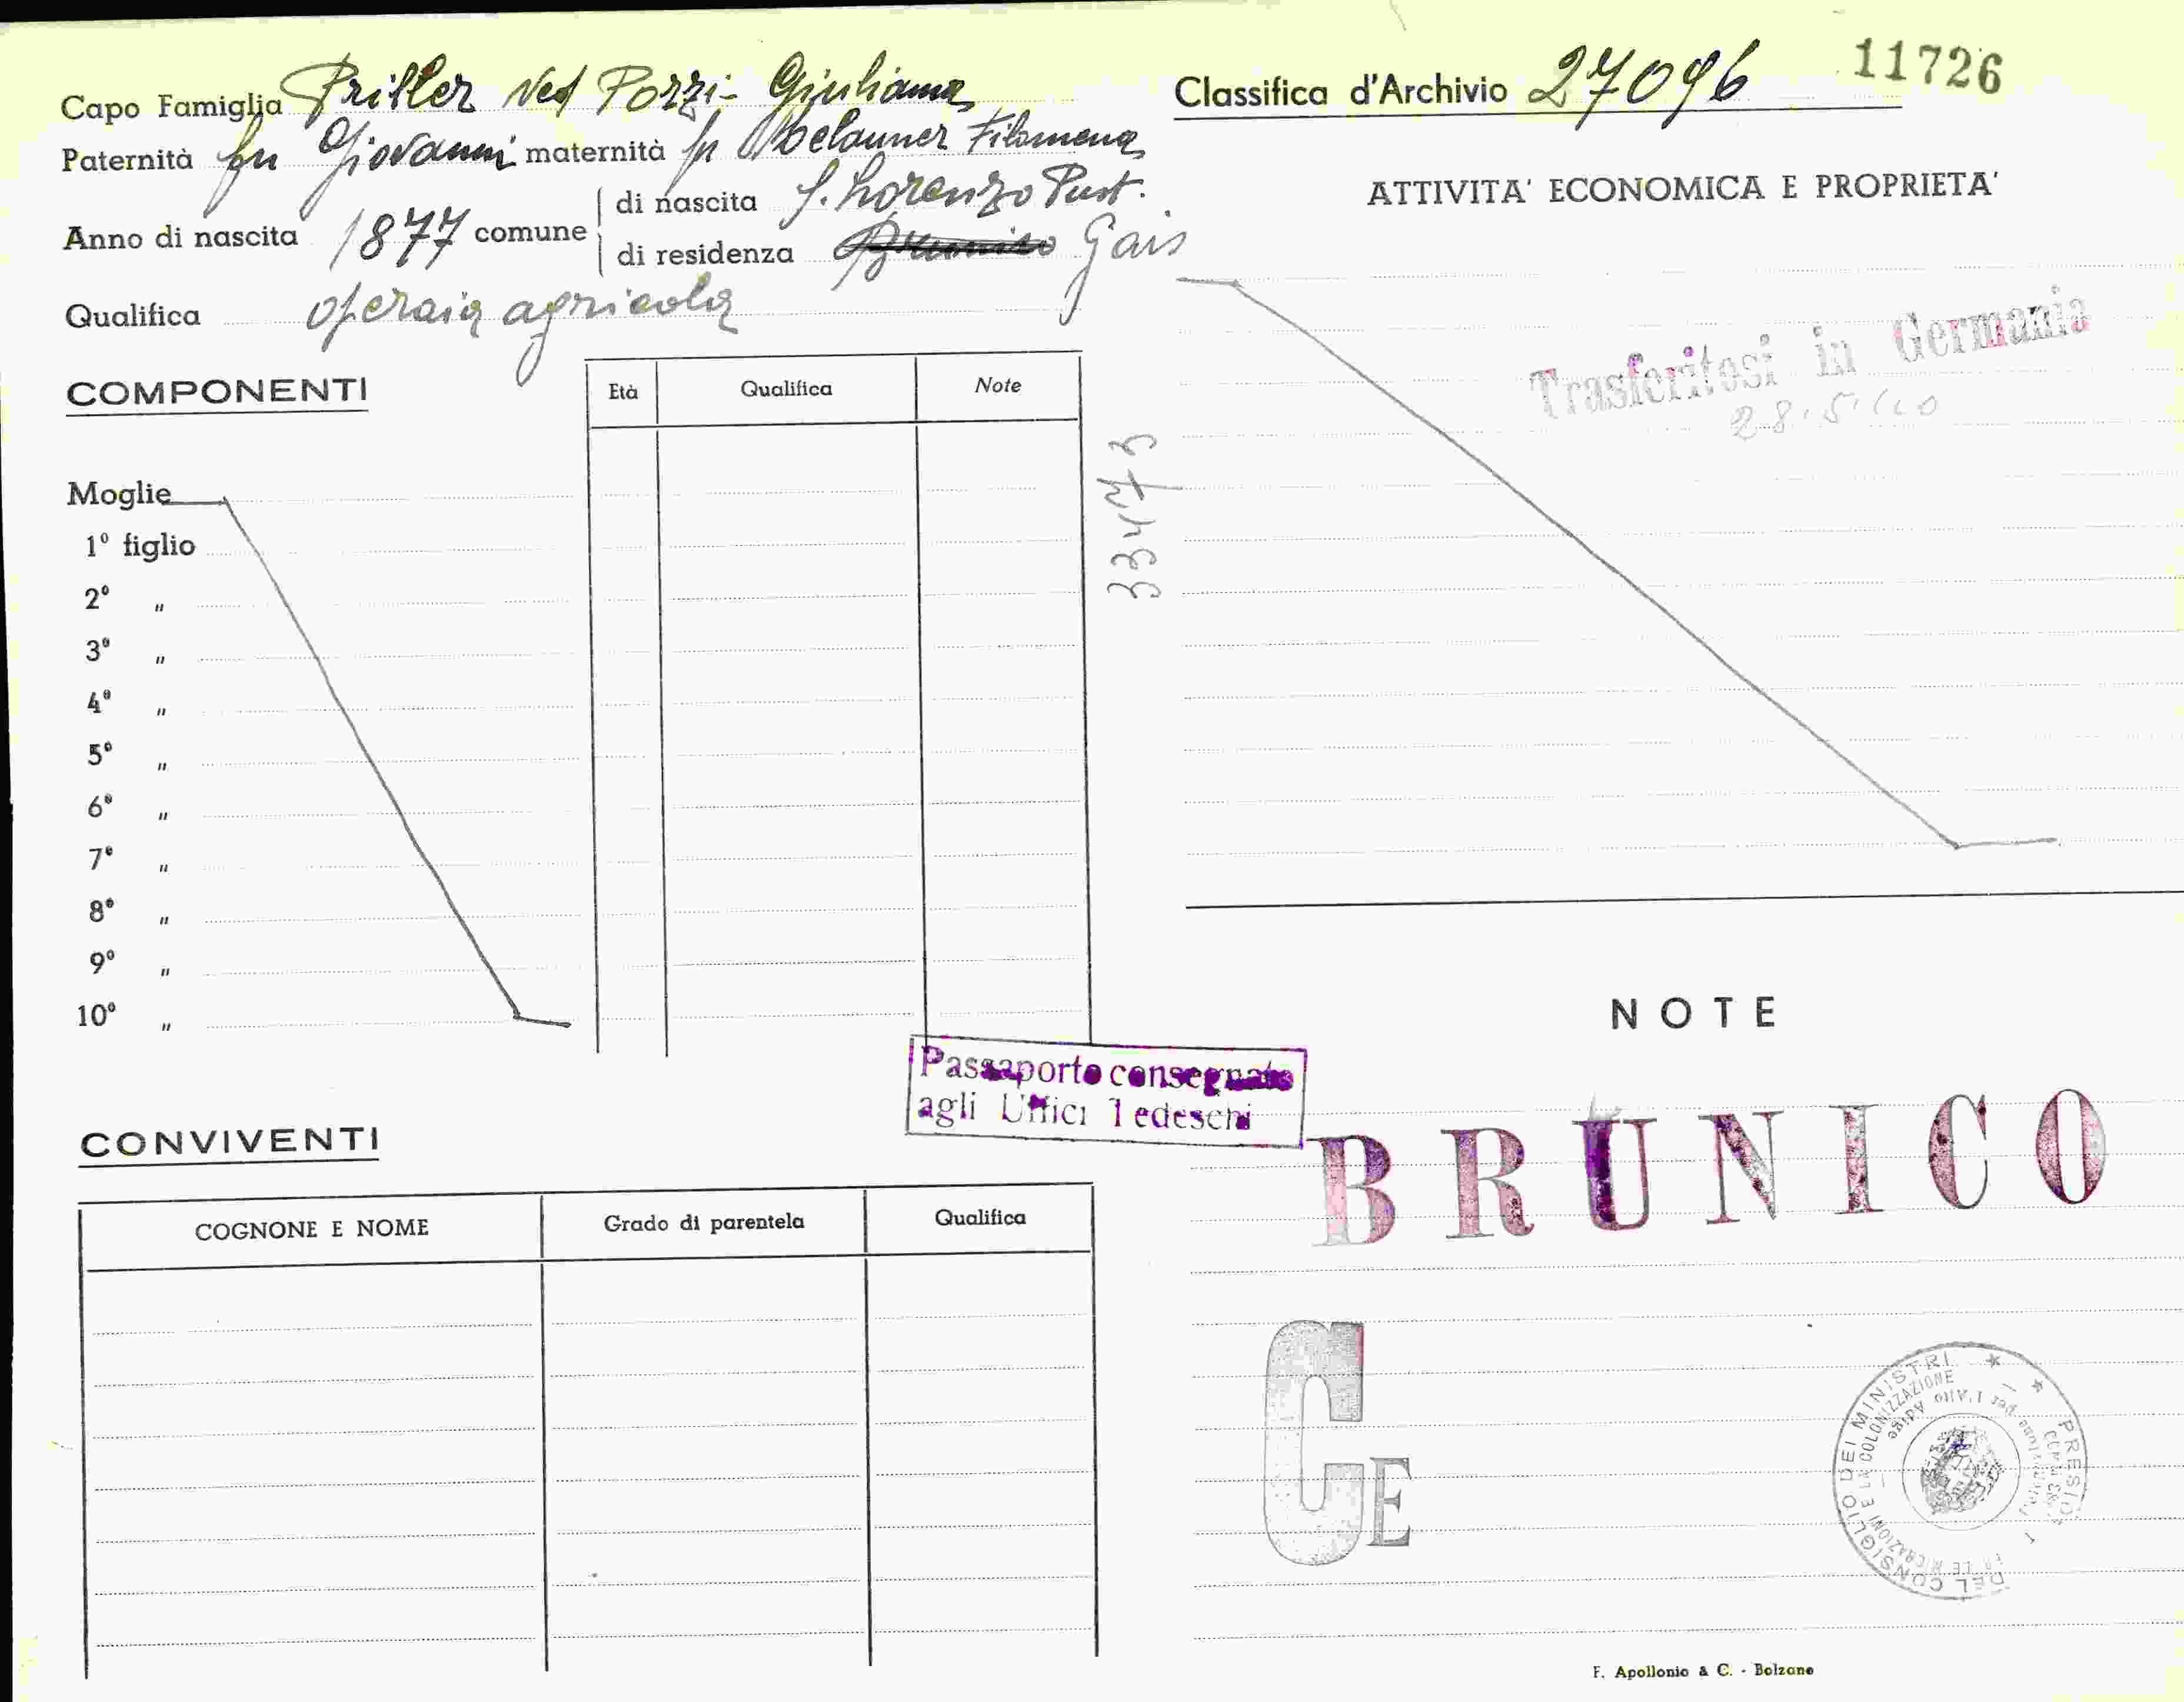 Capo Famiglia Pritler ved Pozzi - Giuliana
Paternità fu Giovanni maternità fu Filomena
Anno di nascita 1877 comune
di nascita S. Lorenzo Pust.
di residenza Brunico Gais
Qualifica operaia agricola
COMPONENTI
Età Qualifica Note
Moglie
1° figlio
2° "
3° "
4° "
5° "
6° "
7° "
8° "
9° "
10° "
CONVIVENTI
COGNONE E NOME Grado di parentela Qualifica
Classifica d'Archivio 27096 11726
ATTIVITA' ECONOMICA E PROPRIETA'
Trasferitosi in Germania
28.5.40
Passaporto consegnato
agli Uffici Tedeschi
NOTE
BRUNICO
CE
DEL CONSIGLIO DEI MINISTRI
PER LE MIGRAZIONI E LA COLONIZZAZIONE
per l'Alto Adige
F. Apollonio & C. - Bolzano